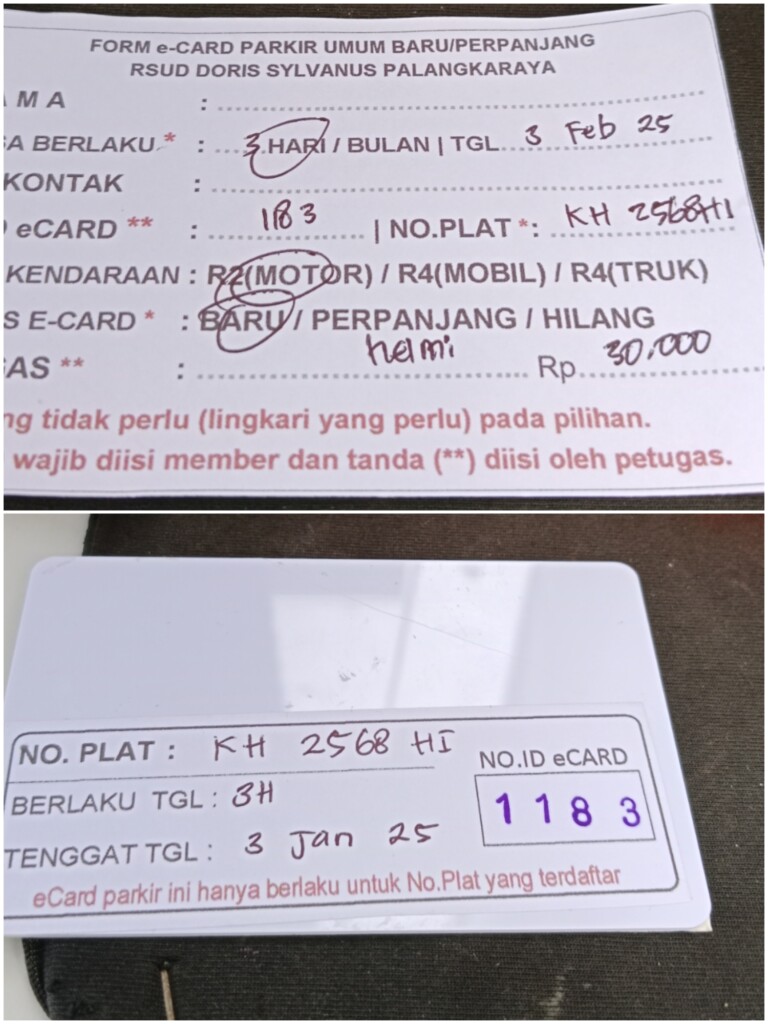 FORM e-CARD PARKIR UMUM BARU/PERPANJANG
RSUD DORIS SYLVANUS PALANGKARAYA
AMA :
A BERLAKU * : 3 HARI / BULAN | TGL 3 Feb 25
KONTAK :
eCARD ** : 1183 | NO.PLAT *: KH 2568 HI
KENDARAAN : R2(MOTOR) / R4(MOBIL) / R4(TRUK)
S E-CARD * : BARU / PERPANJANG / HILANG
AS ** : helmi Rp. 30.000
ng tidak perlu (lingkari yang perlu) pada pilihan.
wajib diisi member dan tanda (**) diisi oleh petugas.
NO. PLAT : KH 2568 HI
NO.ID eCARD
BERLAKU TGL : 3H
1183
TENGGAT TGL : 3 Jan 25
eCard parkir ini hanya berlaku untuk No.Plat yang terdaftar